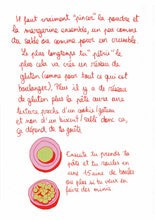 Il faut vraiment "pincer" la poudre et
la margarine ensemble, un peu comme
du sable ou comme pour un crumble.
Le plus longtemps tu "pétris" le
plus cela va créer un réseau de
gluten (comme pour tout ce qui est
boulanger). Plus il y a de réseau
de gluten plus la pâte aura une
texture proche d'un cookie/gâteau
et non d'un biscuit/sablé donc ça,
ça dépend de tes goûts
Ensuite tu prends ta
pâte et tu roules en
une 15aine de boules
ou plus si tu veux en
faire des minis